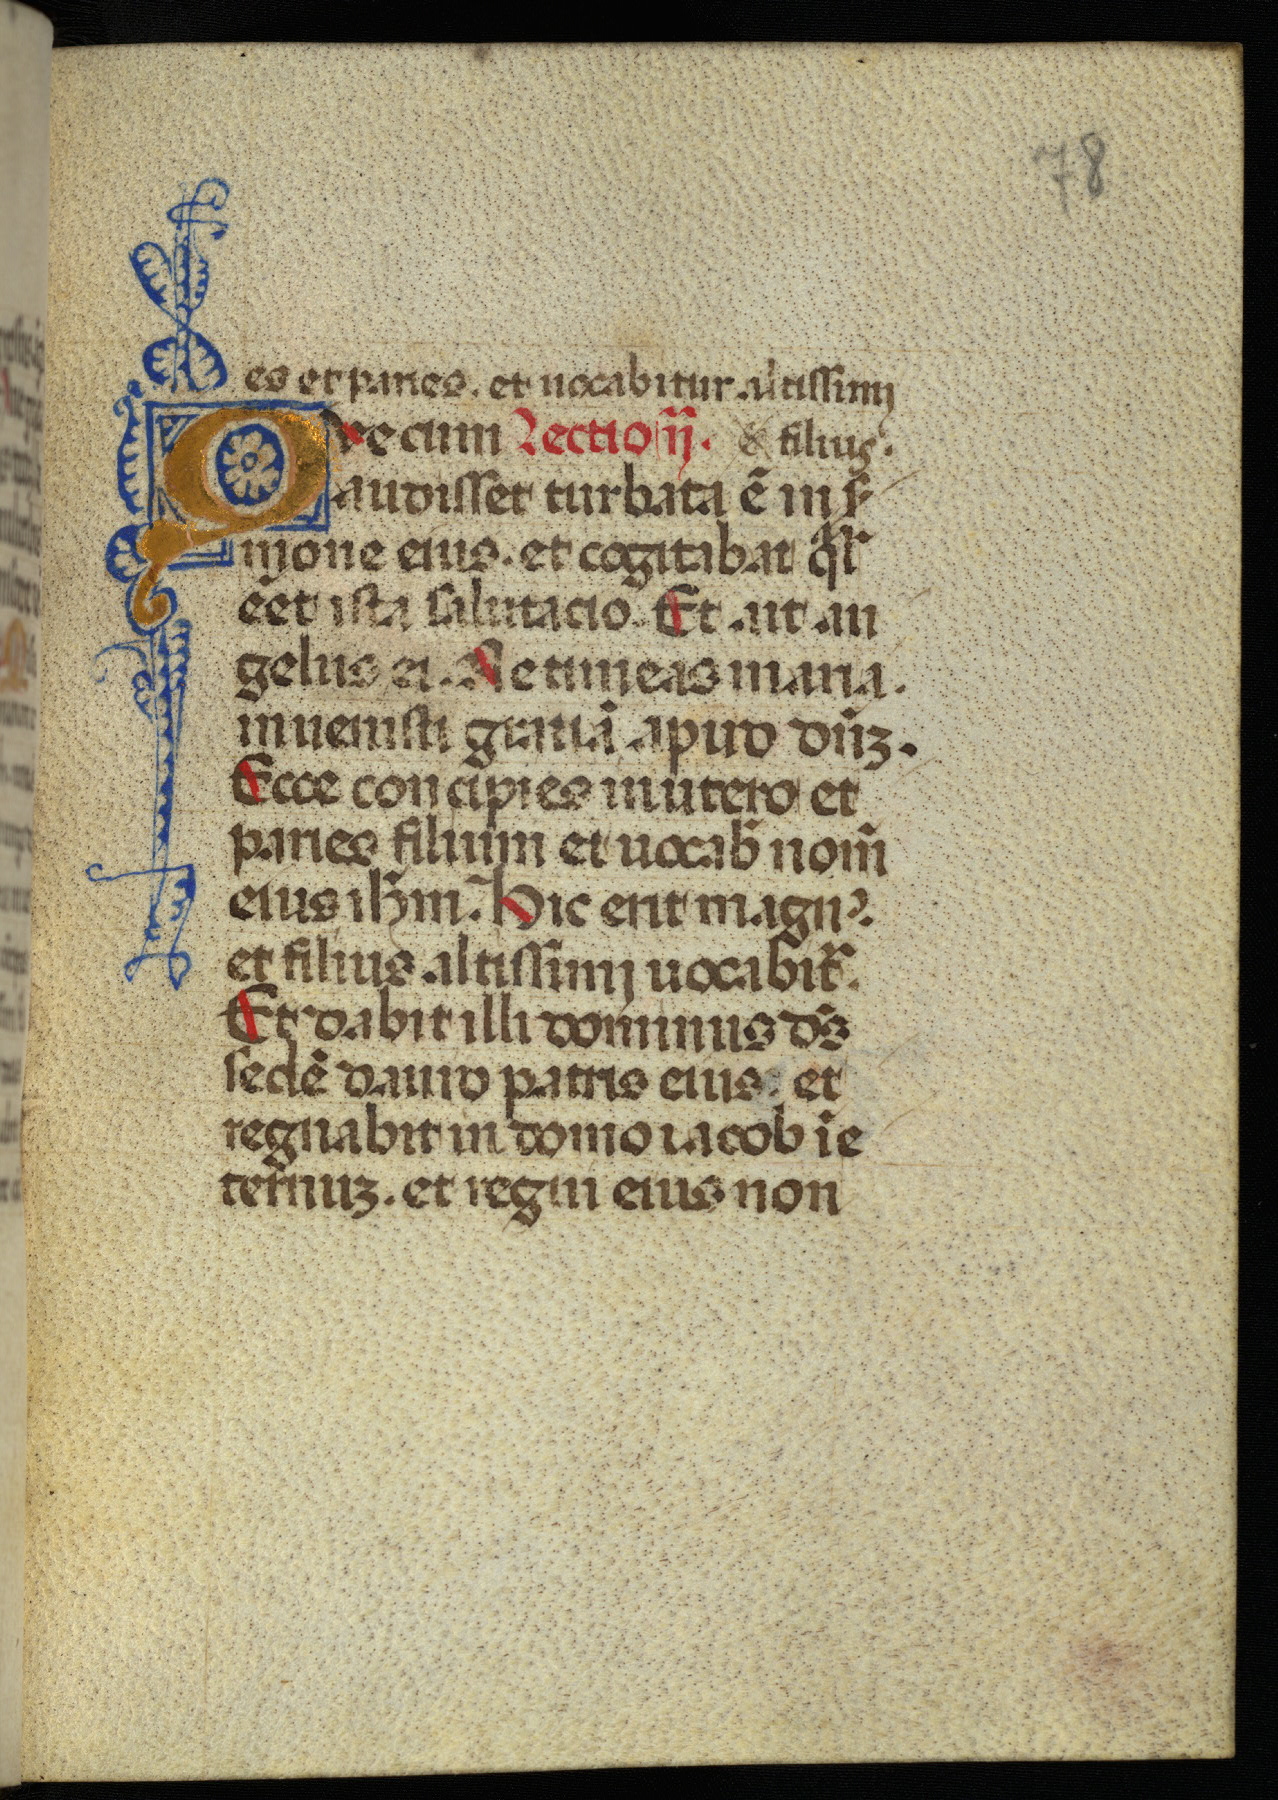 78
es et paries. et uocabitur altissimi
Que cum Lectio ij. & filius.
audisset turbata ē in s̄
mone eius. et cogitabat ql̄
eēt ista salutacio. Et ait an
gelus ei. Ne timeas maria.
inuenisti gratiā apud dn̄z.
Ecce concipies in utero et
paries filium et uocab̄ nom̄
eius ih̄m. Hic erit magnꝰ.
et filius altissimi uocabit᷑.
Et dabit illi dominus ds̄
sedē dauid patris eius. et
regnabit in domo iacob ī e
ternuz. et regni eius non